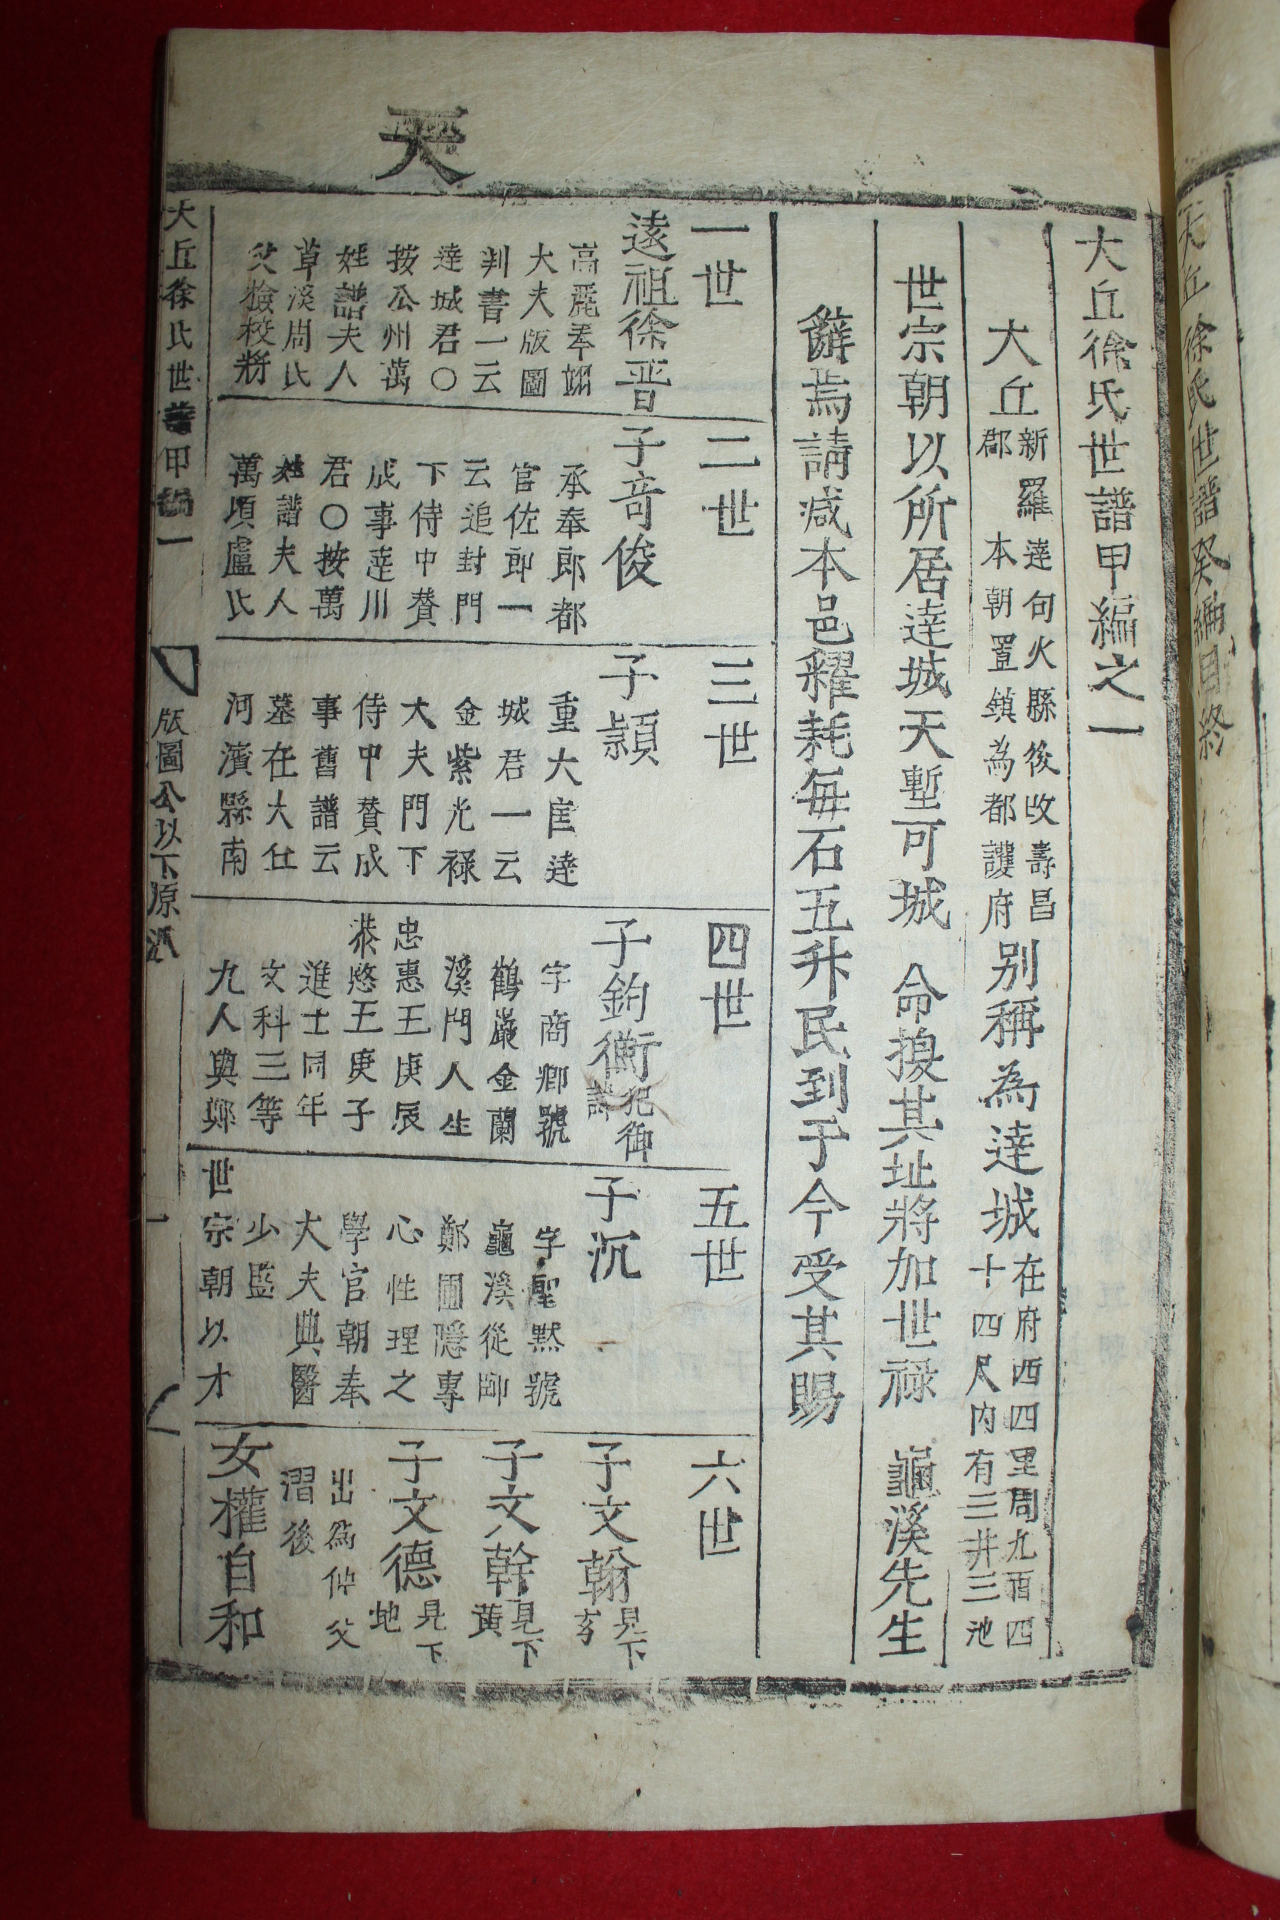 天
大丘徐氏世譜甲編之一
大丘
新羅達句火縣後改壽昌
郡本朝置鎮為都護府
別稱為達城
在府西四里周九百四
十四尺內有三井三池
世宗朝以所居達城天塹可城 命換其址將加世祿 龜溪先生
辭焉請减本邑糶耗每石五升民到于今受其賜
一世
遠祖徐晋
高麗奉翊
大夫版圖
判書一云
達城君○
按公州萬
姓譜夫人
草溪周氏
父檢校將
二世
子奇俊
承奉郎都
官佐郎一
云追封門
下侍中贊
成事達川
君○按萬
姓譜夫人
萬頃盧氏
三世
子頴
重大匡達
城君一云
金紫光祿
大夫門下
侍中贊成
事舊譜云
墓在大仕
河濱縣南
四世
子鈞衡
字商卿號
鶴巖金蘭
溪門人生
忠惠王庚辰
恭愍王庚子
進士同年
文科三等
九人與鄭
五世
子沉
字聖默號
龜溪從師
鄭圃隱專
心性理之
學官朝奉
大夫典醫
少監
世宗朝以才
六世
子文翰
見下
玄
子文幹
見下
黃
子文德
見下
地
出為仲父
㵝後
女權自和
大丘徐氏世譜甲編一
版圖公以下原派
一
大丘徐氏世譜癸編目終